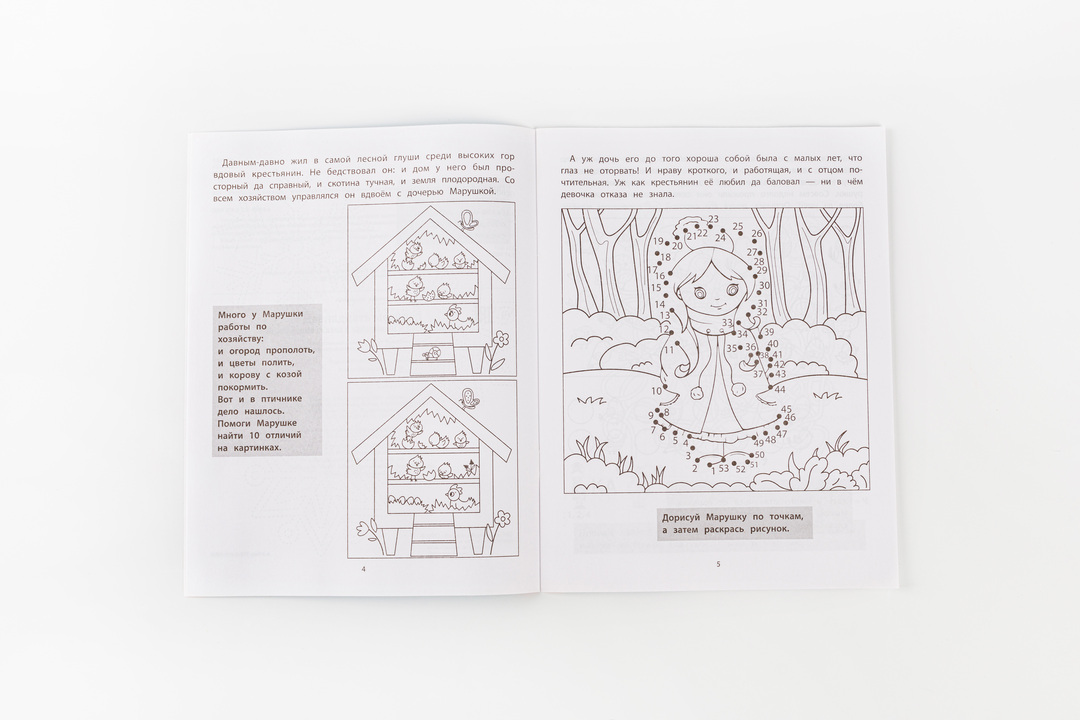 Давным-давно жил в самой лесной глуши среди высоких гор
вдовый крестьянин. Не бедствовал он: и дом у него был про-
сторный да справный, и скотина тучная, и земля плодородная. Со
всем хозяйством управлялся он вдвоём с дочерью Марушкой.
Много у Марушки
работы по
хозяйству:
и огород прополоть,
и цветы полить,
и корову с козой
покормить.
Вот и в птичнике
дело нашлось.
Помоги Марушке
найти 10 отличий
на картинках.
4
А уж дочь его до того хороша собой была с малых лет, что
глаз не оторвать! И нраву кроткого, и работящая, и с отцом по-
чтительная. Уж как крестьянин её любил да баловал — ни в чём
девочка отказа не знала.
23
21 22 24 25
19 20 26
18 27
17 28
16 29
15 30
14 31
13 32
12 33
34 39
11 35 36 40
38 41
42
37 43
10 44
9 8 45
7 46
6 5 4 49 48 47
3 50
2 1 53 52 51
Дорисуй Марушку по точкам,
а затем раскрась рисунок.
5